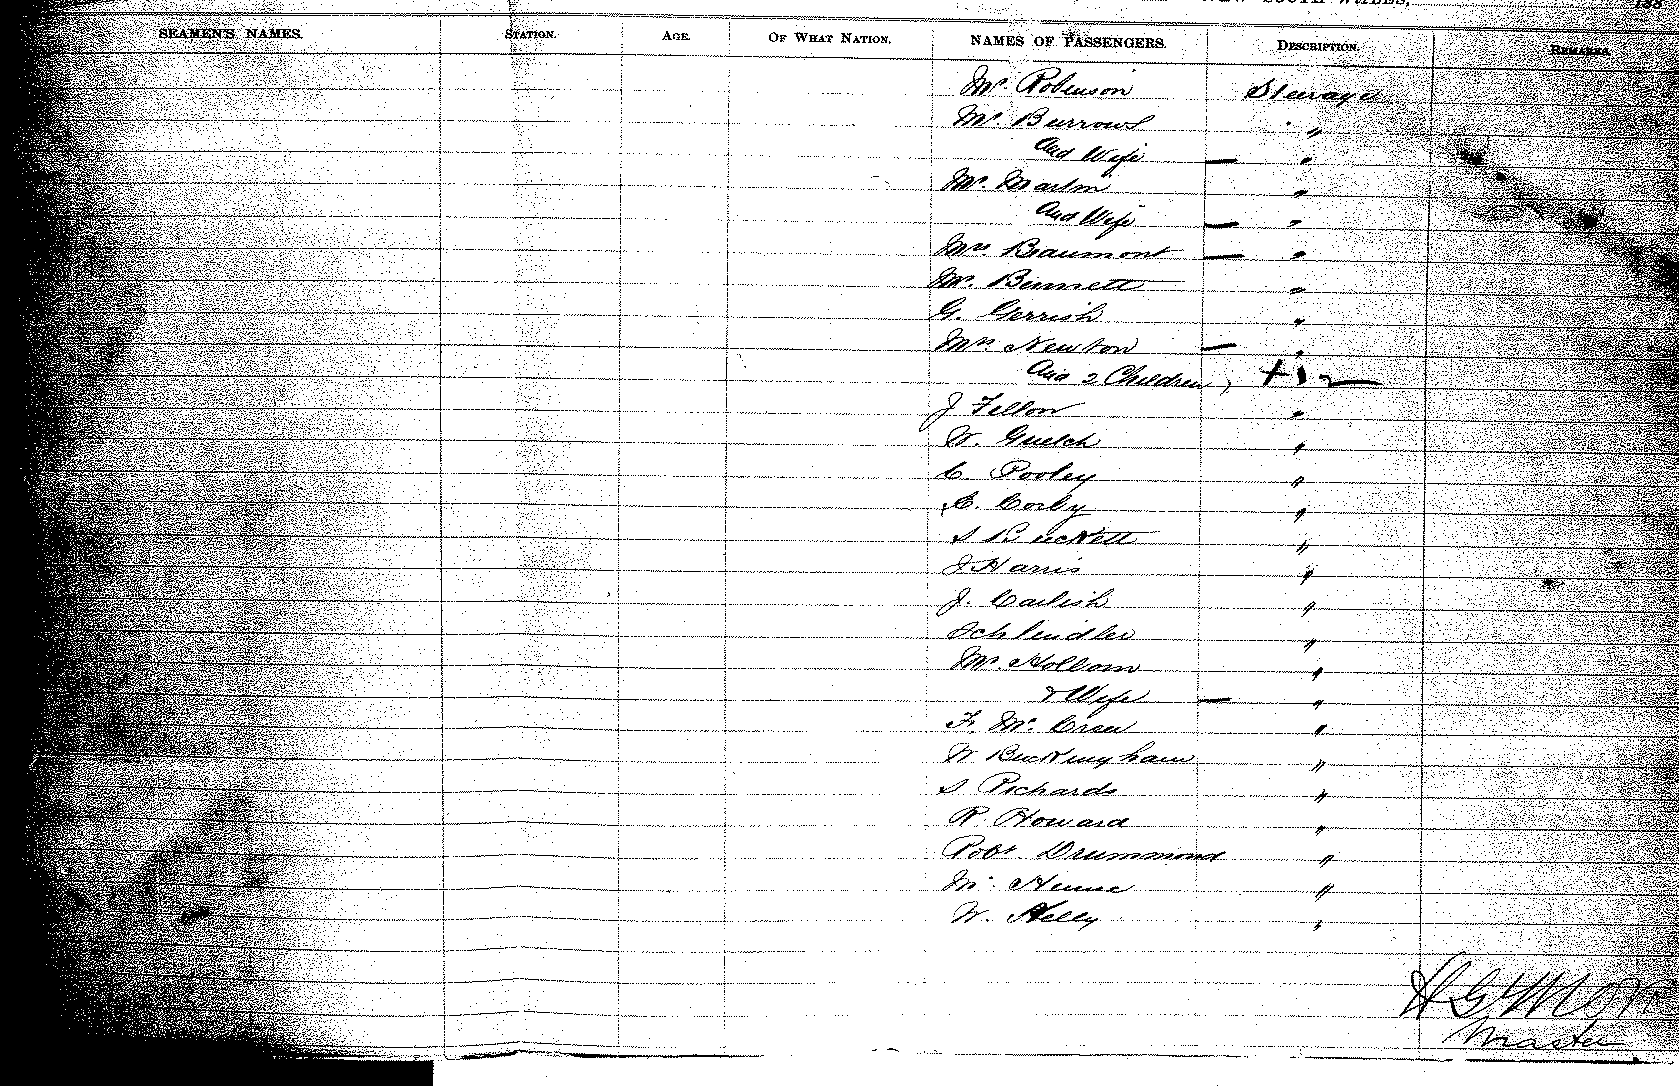 NEW SOUTH WALES, 188
SEAMEN'S NAMES. STATION. AGE. OF WHAT NATION. NAMES OF PASSENGERS. DESCRIPTION. REMARKS.
Mr. Robinson Steerage
Mr. Burrows "
And Wife — "
Mr. Martin "
And Wife — "
Mrs Beaumont — "
Mr. Bennett "
G. Gerrish "
Mrs. Newton — "
And 2 Children
J Fellon "
W. Guelch "
C. Pooley "
C. Corby "
S Beckett "
J Harris "
J. Carlish "
Schlindler "
Mr. Hollom "
& Wife — "
F. Mc "
W Buckingham "
S Richards "
R. Howard "
Robt Drummond "
"
W. Kelly "
Master